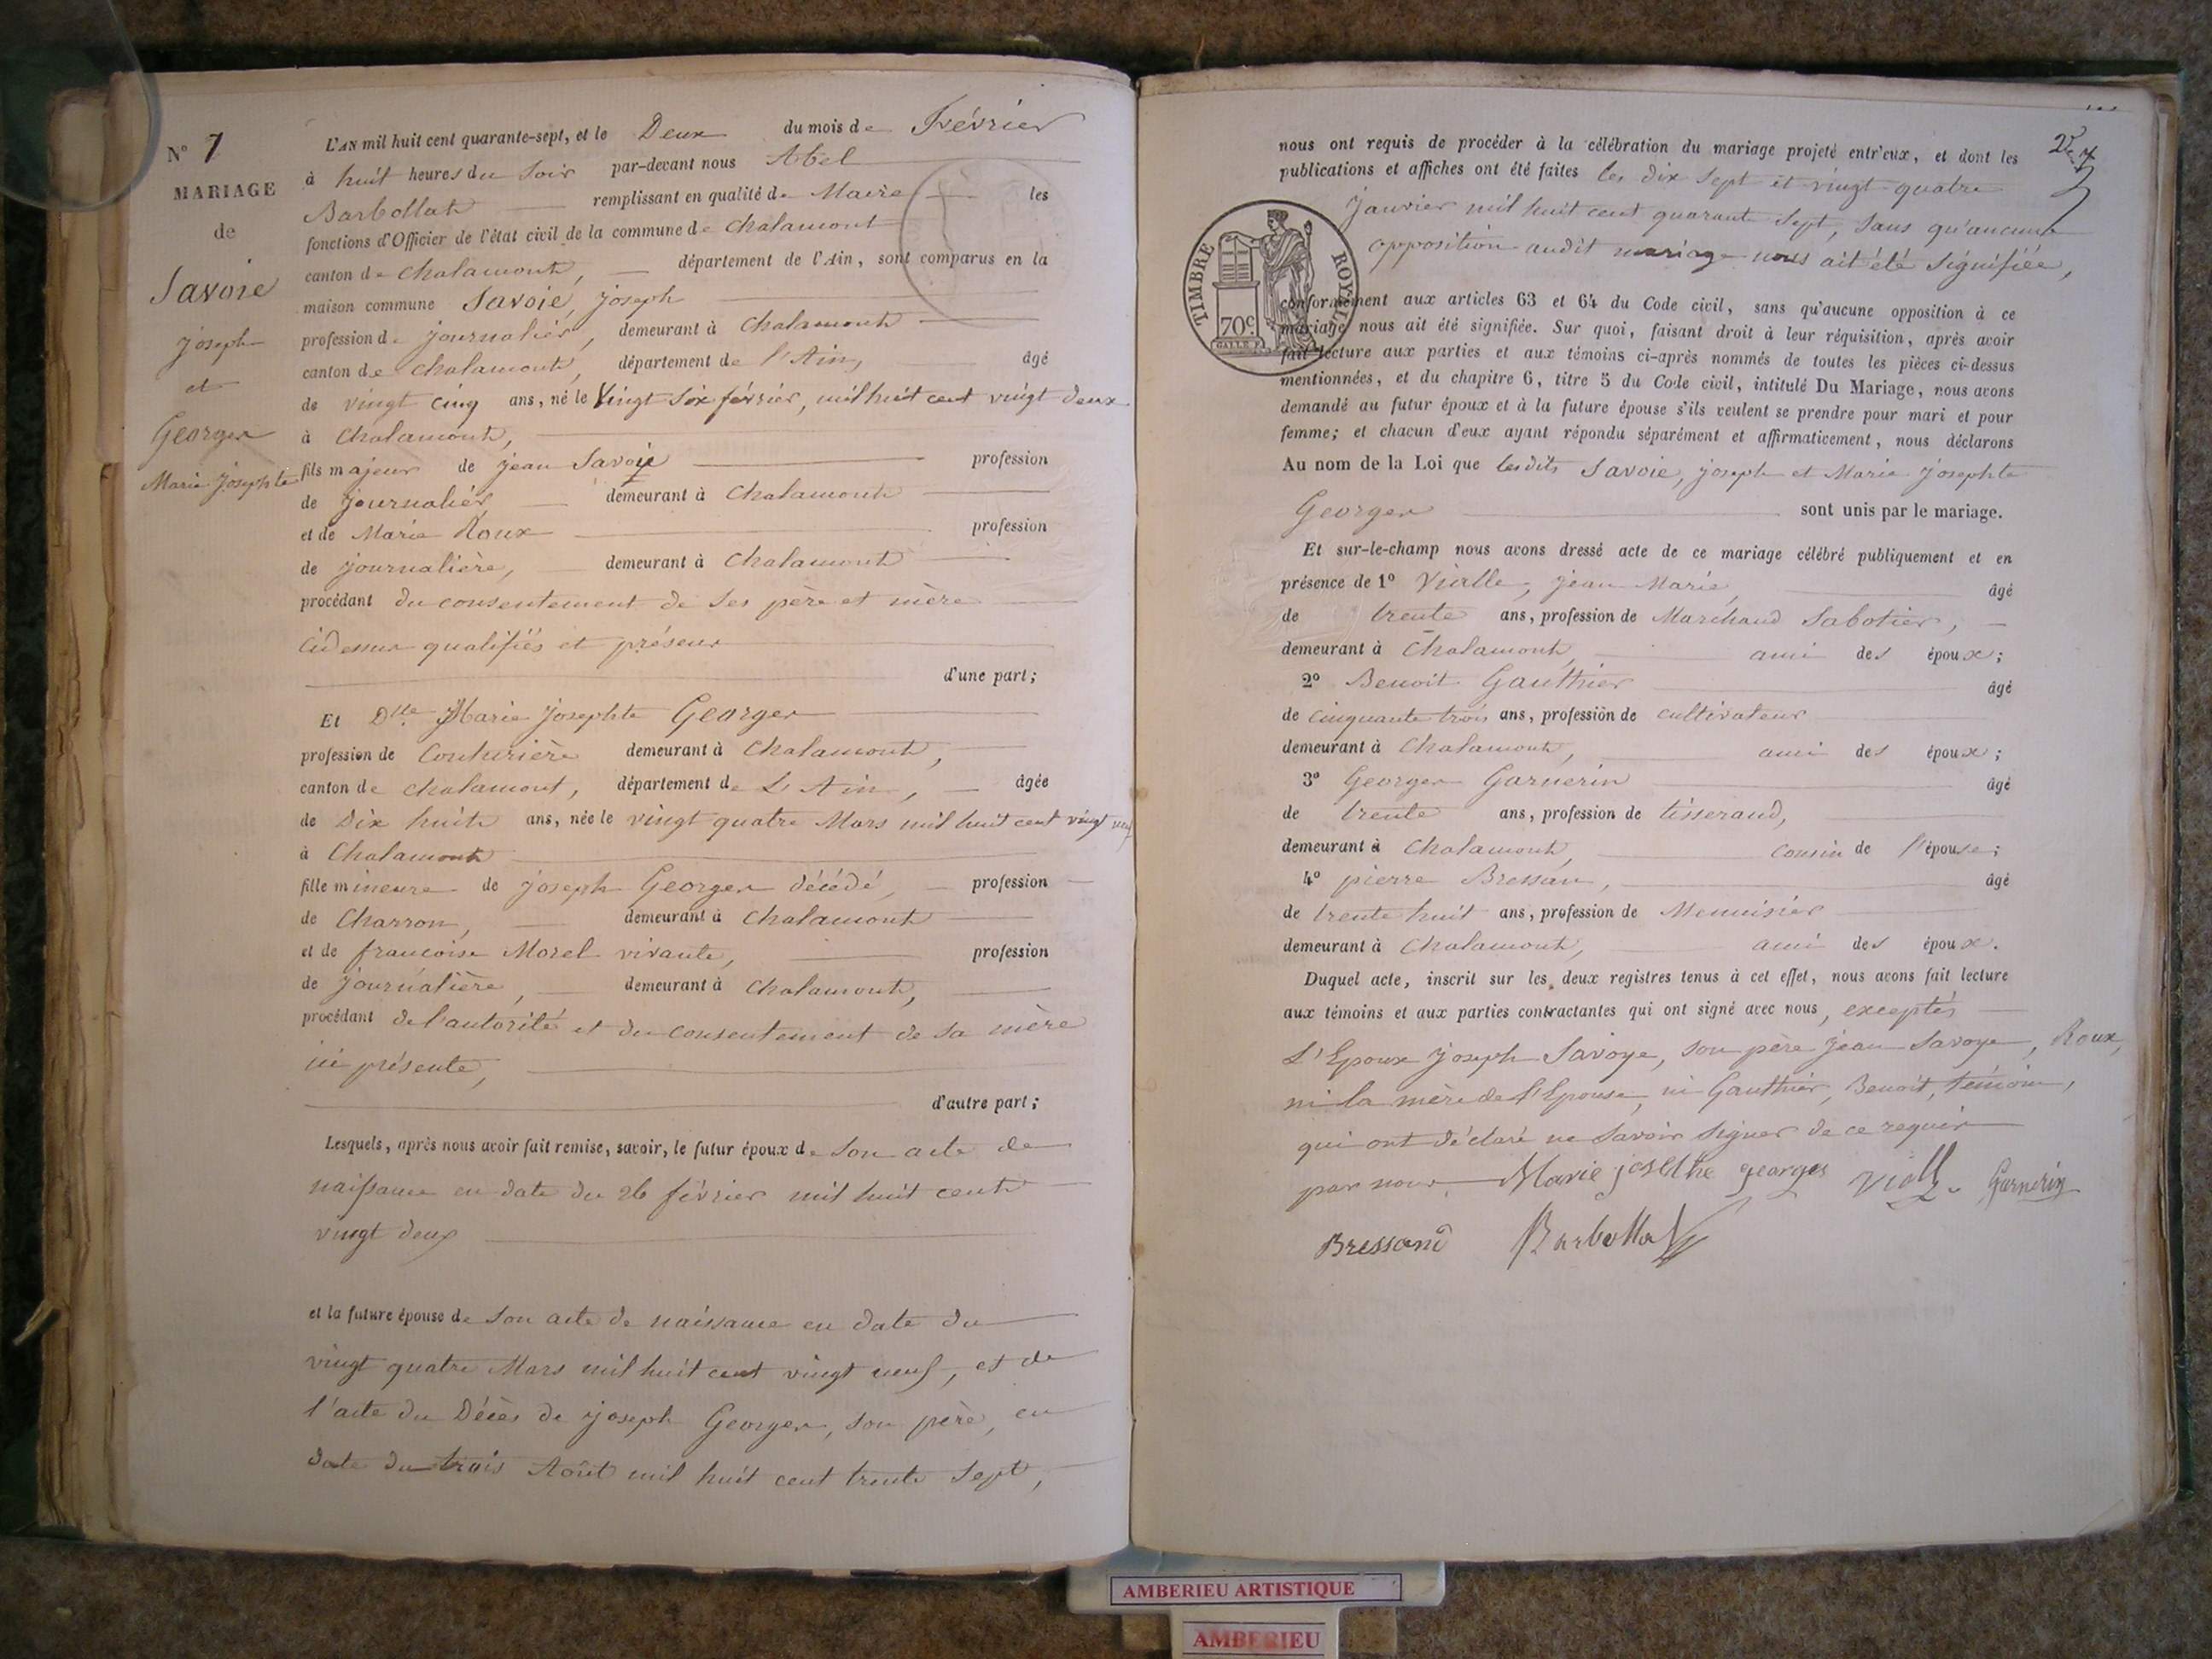 N° 7
MARIAGE
de
Savoie
Joseph
et
Georges
Marie Josephte
L'AN mil huit cent quarante-sept, et le Deux du mois de Février
à huit heures du Soir par-devant nous Abel
Barbollat remplissant en qualité de Maire les
fonctions d'Officier de l'état civil de la commune de Chalamont
canton de Chalamont, département de l'Ain, sont comparus en la
maison commune Savoie, Joseph
profession de journalier, demeurant à Chalamont
canton de Chalamont, département de l'Ain, âgé
de vingt cinq ans, né le Vingt Six février, mil huit cent vingt deux
à Chalamont,
fils majeur de Jean Savoie profession
de Journalier, demeurant à Chalamont
et de Marie Roux profession
de journalière, demeurant à Chalamont
procédant du consentement de ses père et mère
cidessus qualifiés et présens
d'une part;
Et Dlle Marie Josephte Georges
profession de Couturière demeurant à Chalamont,
canton de Chalamont, département de L'Ain, âgée
de Dix huit ans, née le vingt quatre Mars mil huit cent vingt neuf
à Chalamont
fille mineure de Joseph Georges décédé, profession
de Charron, demeurant à Chalamont
et de francoise Morel vivante, profession
de Journalière, demeurant à Chalamont,
procédant de l'autorité et du consentement de sa mère
ici présente,
d'autre part;
Lesquels, après nous avoir fait remise, savoir, le futur époux de Son acte de
naissance en date du 26 février mil huit cent
vingt deux
et la future épouse de Son acte de naissance en date du
vingt quatre Mars mil huit cent vingt neuf, et de
l'acte du Décès de Joseph Georges, son père, en
date du trois Août mil huit cent trente Sept,
nous ont requis de procéder à la célébration du mariage projeté entr'eux, et dont les
publications et affiches ont été faites les dix Sept et vingt quatre
Janvier mil huit cent quarante Sept, Sans qu'aucune
opposition audit mariage nous ait été Signifiée,
TIMBRE ROYAL
70c
conformément aux articles 63 et 64 du Code civil, sans qu'aucune opposition à ce
mariage nous ait été signifiée. Sur quoi, faisant droit à leur réquisition, après avoir
fait lecture aux parties et aux témoins ci-après nommés de toutes les pièces ci-dessus
mentionnées, et du chapitre 6, titre 5 du Code civil, intitulé Du Mariage, nous avons
demandé au futur époux et à la future épouse s'ils veulent se prendre pour mari et pour
femme; et chacun d'eux ayant répondu séparément et affirmativement, nous déclarons
Au nom de la Loi que lesdits Savoie, Joseph et Marie Josephte
Georges sont unis par le mariage.
Et sur-le-champ nous avons dressé acte de ce mariage célébré publiquement et en
présence de 1° Vialle, Jean Marie, âgé
de trente ans, profession de Marchand Sabotier,
demeurant à Chalamont, ami des époux;
2° Benoit Gauthier âgé
de cinquante trois ans, profession de cultivateur
demeurant à Chalamont, ami des époux;
3° Georges Garnerin âgé
de trente ans, profession de tisserand,
demeurant à Chalamont, cousin de l'épouse;
4° pierre Bressan, âgé
de trente huit ans, profession de Menuisier
demeurant à Chalamont, ami des époux.
Duquel acte, inscrit sur les deux registres tenus à cet effet, nous avons fait lecture
aux témoins et aux parties contractantes qui ont signé avec nous, exceptés
L'Epoux Joseph Savoye, son père Jean Savoye, Roux,
ni la mère de l'Epouse, ni Gauthier, Benoit, témoin,
qui ont déclaré ne Savoir Signer de ce requis
par nous. Marie joséthe georges Vialle Garnerin
Bressand Barbollat
AMBERIEU ARTISTIQUE
AMBERIEU